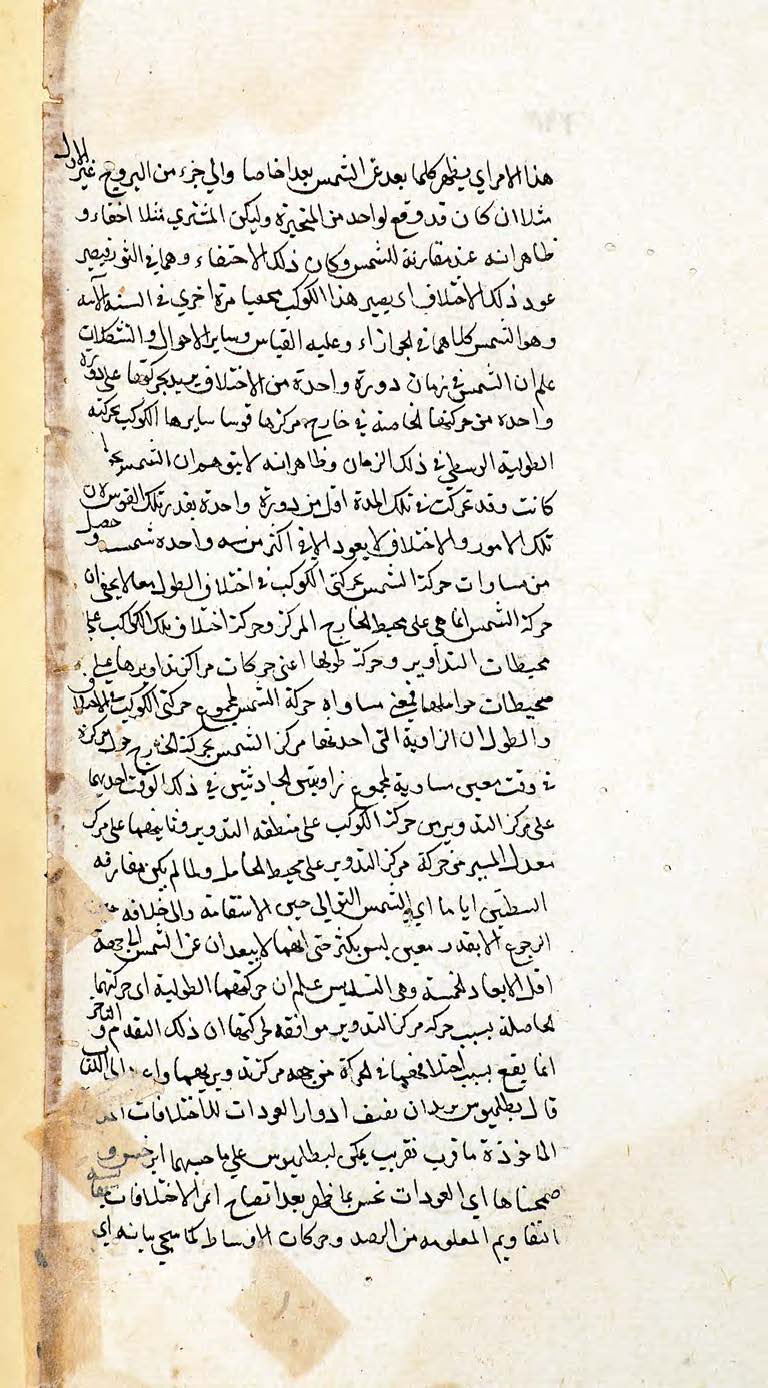 هذا الامر اي يظهر كلما بعد عن الشمس بعدا خاصا والي جزء من البروج غير الاول
مثلا ان كان قد وقع لواحد من المتحيرة وليكن المشتري مثلا اختفاء و
ظاهر انه عند مقارنة للشمس وكان ذلك الاختفاء وهما في الثور فيصير
عود ذلك الاختلاف اي يصير هذا الكوكب مختفيا مرة اخري في السنة الآتية
وهو الشمس كلاهما في الجوزاء وعليه القياس وساير الاحوال والتشكلات
علم ان الشمس في زمان دورة واحدة من الاختلاف يزيد بحركتها علي دورة
واحدة من حركتها الخاصة في خارج مركزها قوسا سايرها الكوكب بحركته
الطولية الوسطي في ذلك الزمان وظاهر انه لا يتوهم ان الشمس
كانت وقد تحركت في تلك المدة اقل من دورة واحدة بقدر تلك القوس لان
تلك الامور والاختلاف لا يعود الا في اكثر من سنة واحدة شمسية و حصل
من مساوات حركة الشمس بحركتي الكوكب في اختلاف الطول معا لا يخفي ان
حركة الشمس انما هي علي محيط الخارج المركز وحركة اختلاف تلك الكواكب علي
محيطات التداوير وحركة طولها اعني حركات مراكز تداويرها علي
محيطات حواملها فمعني مساواة حركة الشمس لمجموع حركتي الكوكب في الاختلاف
والطول ان الزاوية التي احدثها مركز الشمس بحركة الخارج حول مركزه
في وقت معين مساوية لمجموع زاويتين الحادثتين في ذلك الوقت احديهما
علي مركز التدوير من حركة الكوكب علي منطقة التدوير وثانيتهما علي مركز
معدل المسير من حركة مركز التدوير علي محيط الحامل ولما لم يكن مفارقة
السفليين اياما اي الشمس الي التوالي حين الاستقامة والي خلافه حين
الرجوع الا بقدر معين ليس بكثير حتي انهما لا يبعدان عن الشمس الي جهة
اقل الابعاد الخمسة وهي التسديس علم ان حركتهما الطولية اي حركتهما
الحاصلة بسبب حركة مركز التدوير موافقة لحركتها وان ذلك التقدم والتاخر
انما يقع بسبب اختلافهما في الحركة من جهة مركز تدويريهما الي الكتاب
قال بطلميوس يريد ان يصف ادوار العودات للاختلافات
الماخوذة ما قرب تقريب يمكن لبطلميوس علي ما حسبها ابرخس و
صححناها اي العودات نحن بما ظهر بعد ايضاح امر الاختلافات بمقايسة
التقاويم المعلومة من الرصد وحركات الاوساط كما سيجي بيانه اي